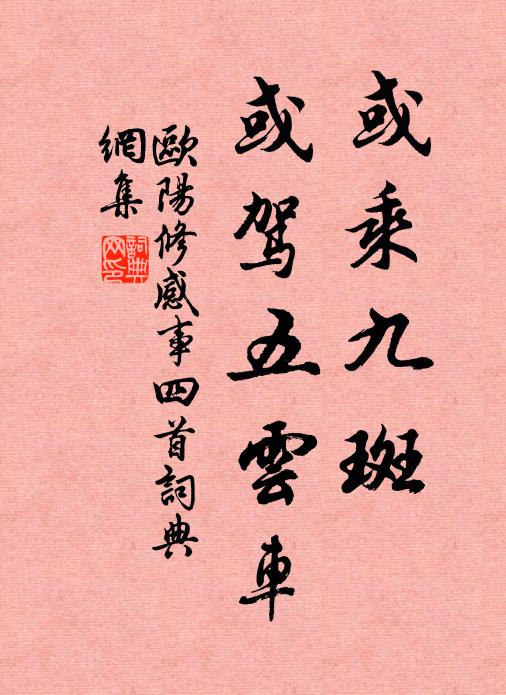 或乘九斑
或駕五雲車
歐陽修感事四首詞典
網集
詞典
网印